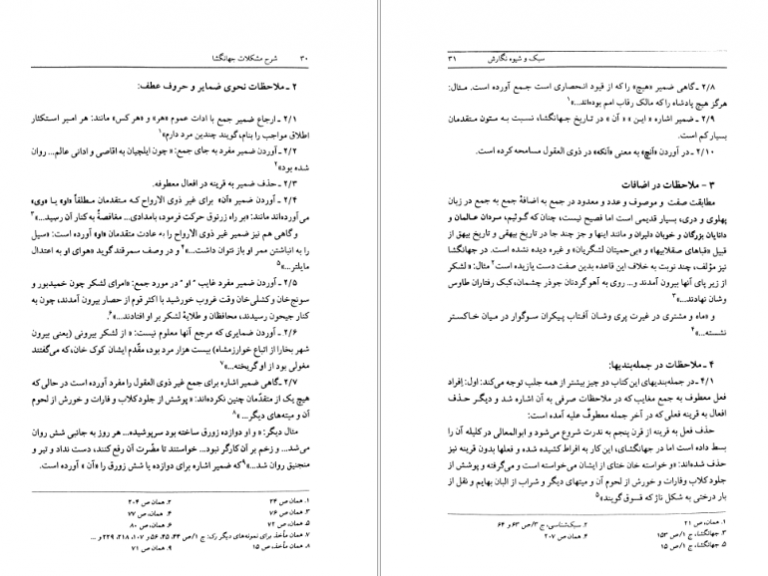 ۳۰ شرح مشکلات جهانگشا
۲ ـ ملاحظات نحوی ضمایر و حروف عطف:
۲/۱ ـ ارجاع ضمیر جمع با ادات عموم «هر» و «هر کس» مانند: هر امیر استکثار
اطلاق مواجب را بنام، گویند چندین مرد دارم»۱
۲/۲ ـ آوردن ضمیر مفرد به جای جمع: « چون ایلچیان به اقاصی و ادانی عالم... روان
شده بود»۲
۲/۳ ـ حذف ضمیر به قرینه در افعال معطوفه.
۲/۴ ـ آوردن ضمیر «آن» برای غیر ذوی الارواح که متقدمان مطلقاً «او» یا «وی»
می‌آورده‌اند مانند: «بر راه زرنوق حرکت فرمود، بامدادی... مغافصةً به کنار آن رسید...»۳
و گاهی هم نیز ضمیر غیر ذوی الارواح را به عادت متقدمان «او» آورده است: «سیل
را به انباشتن ممر او باز نتوان داشت...»۴ و در وصف سمرقند گوید «هوای او به اعتدال
مایلتر...»۵
۲/۵ ـ آوردن ضمیر مفرد غایب "او" در مورد جمع: «امرای لشکر چون خمیدبور و
سونج خان و کشلی خان وقت غروب خورشید با اکثر قوم از حصار بیرون آمدند، چون به
کنار جیحون رسیدند، محافظان و طلایهٔ لشکر بر او افتادند...»۶.
۲/۶ ـ آوردن ضمایری که مرجع آنها معلوم نیست: « از لشکر بیرونی (یعنی بیرون
شهر بخارا از اتباع خوارزمشاه) بیست هزار مرد بود، مقدّم ایشان کوک خان، که می‌گفتند
مغولی بود از او گریخته...»۷
۲/۷ ـ گاهی ضمیر اشاره برای جمع غیر ذوی العقول را مفرد آورده است در حالی که
هیچ یک از متقدّمان چنین نکرده‌اند: « پوشش از جلود کلاب و فارات و خورش از لحوم
آن و میته‌های دیگر...» ۸
مثال دیگر: « و او دوازده زورق ساخته بود سرپوشیده... هر روز به جانبی شش روان
می‌شد... و زخم بر آن کارگر نبود... خواستند تا مضّرت آن رفع کنند، دست نداد و تیر و
منجنیق روان شد...»۹ که ضمیر اشاره برای دوازده یا شش زورق را «آن» آورده است.
۱. همان ص ۲۴ ۲. همان ص ۲۰۴
۳. همان ص ۷۶ ۴. همان، ص ۷۷
۵. همان، ص ۷۲ ۶. همان، ص ۸۰
۷. همان مأخذ برای نمونه‌های دیگر رک: ج ۱/ص ۴۳، ۴۵، ۵۶ و ۱۰۷، ۲۱۸، ۲۲۹ و ...
۸. همان مأخذ، ص ۱۵ ۹. همان ص ۷۱
سبک و شیوه نگارش ۳۱
۲/۸ ـ گاهی ضمیر «هیچ» را که از قیود انحصاری است جمع آورده است. مثال:
هرگز هیچ پادشاه را که مالک رقاب امم بوده‌اند...»۱
۲/۹ ـ ضمیر اشاره « این » « آن » در تاریخ جهانگشا، نسبت به متون متقدمان
بسیار کم است.
۲/۱۰ ـ در آوردن «آنچ» به معنی «آنکه» در ذوی العقول مسامحه کرده است.
۳ - ملاحظات در اضافات
مطابقت صفت و موصوف و عدد و معدود در جمع به اضافهٔ جمع به جمع در زبان
پهلوی و دری، بسیار قدیمی است اما فصیح نیست، چنان که گوئیم، سردان عالمان و
دانایان بزرگان و خوبان دلیران و مانند اینها و جز چند جا در تاریخ بیهقی و تاریخ بیهق از
قبیل «قباهای صقلابیها» و «بی‌حمیتان لشگریان» و غیره دیده نشده است. در جهانگشا
نیز مؤلف، چند نوبت به خلاف این قاعده بدین صفت دست یازیده است۲ مثال: « لشکر
از زیر پای آنها بیرون آمدند و... روی به آهو گردنان جوذر چشمان، کبک رفتاران طاوس
وشان نهادند...»۳
و «ماه و مشتری در غیرت پری وشان آفتاب پیکران سوگوار در میان خاکستر
نشسته...»۴
۴ ـ ملاحظات در جمله‌بندیها:
۴/۱ ـ در جمله‌بندیهای این کتاب دو چیز بیشتر از همه جلب توجه می‌کند: اول: اِفراد
فعل معطوف به جمع مغایب که در ملاحظات صرفی به آن اشاره شد و دیگر حذف
افعال به قرینه فعلی که در آخر جمله معطوفٌ علیه آمده است:
حذف فعل به قرینه از قرن پنجم به ندرت شروع می‌شود و ابوالمعالی در کلیله آن را
بسط داده است اما در جهانگشای، این کار به افراط کشیده شده و فعلها بدون قرینه نیز
حذف شده‌اند: «و خواسته خان ختای از ایشان می‌خواسته است و می‌گرفته و پوشش از
جلود کلاب وفارات و خورش از لحوم آن و میتهای دیگر و شراب از البان بهایم و نقل از
بار درختی به شکل ناز که قسوق گویند»۵
۱. همان، ص ۲۱ ۲. سبک‌شناسی، ج ۳/ص ۶۳ و ۶۴
۳. جهانگشا، ج ۱/ص ۱۵۳ ۴. همان، ص ۲۰۷
۵. جهانگشا، ج ۱/ص ۱۵